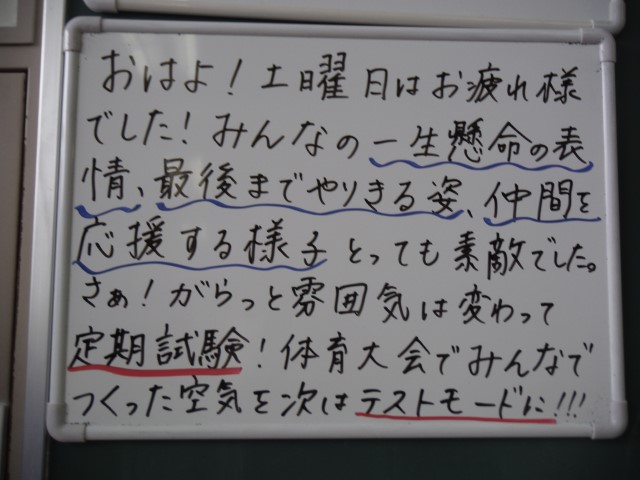 おはよ!土曜日はお疲れ様
でした!みんなの一生懸命の表
情、最後までやりきる姿、仲間を
応援する様子とっても素敵でした。
さぁ!がらっと雰囲気は変わって
定期試験!体育大会でみんなで
つくった空気を次はテストモードに!!!